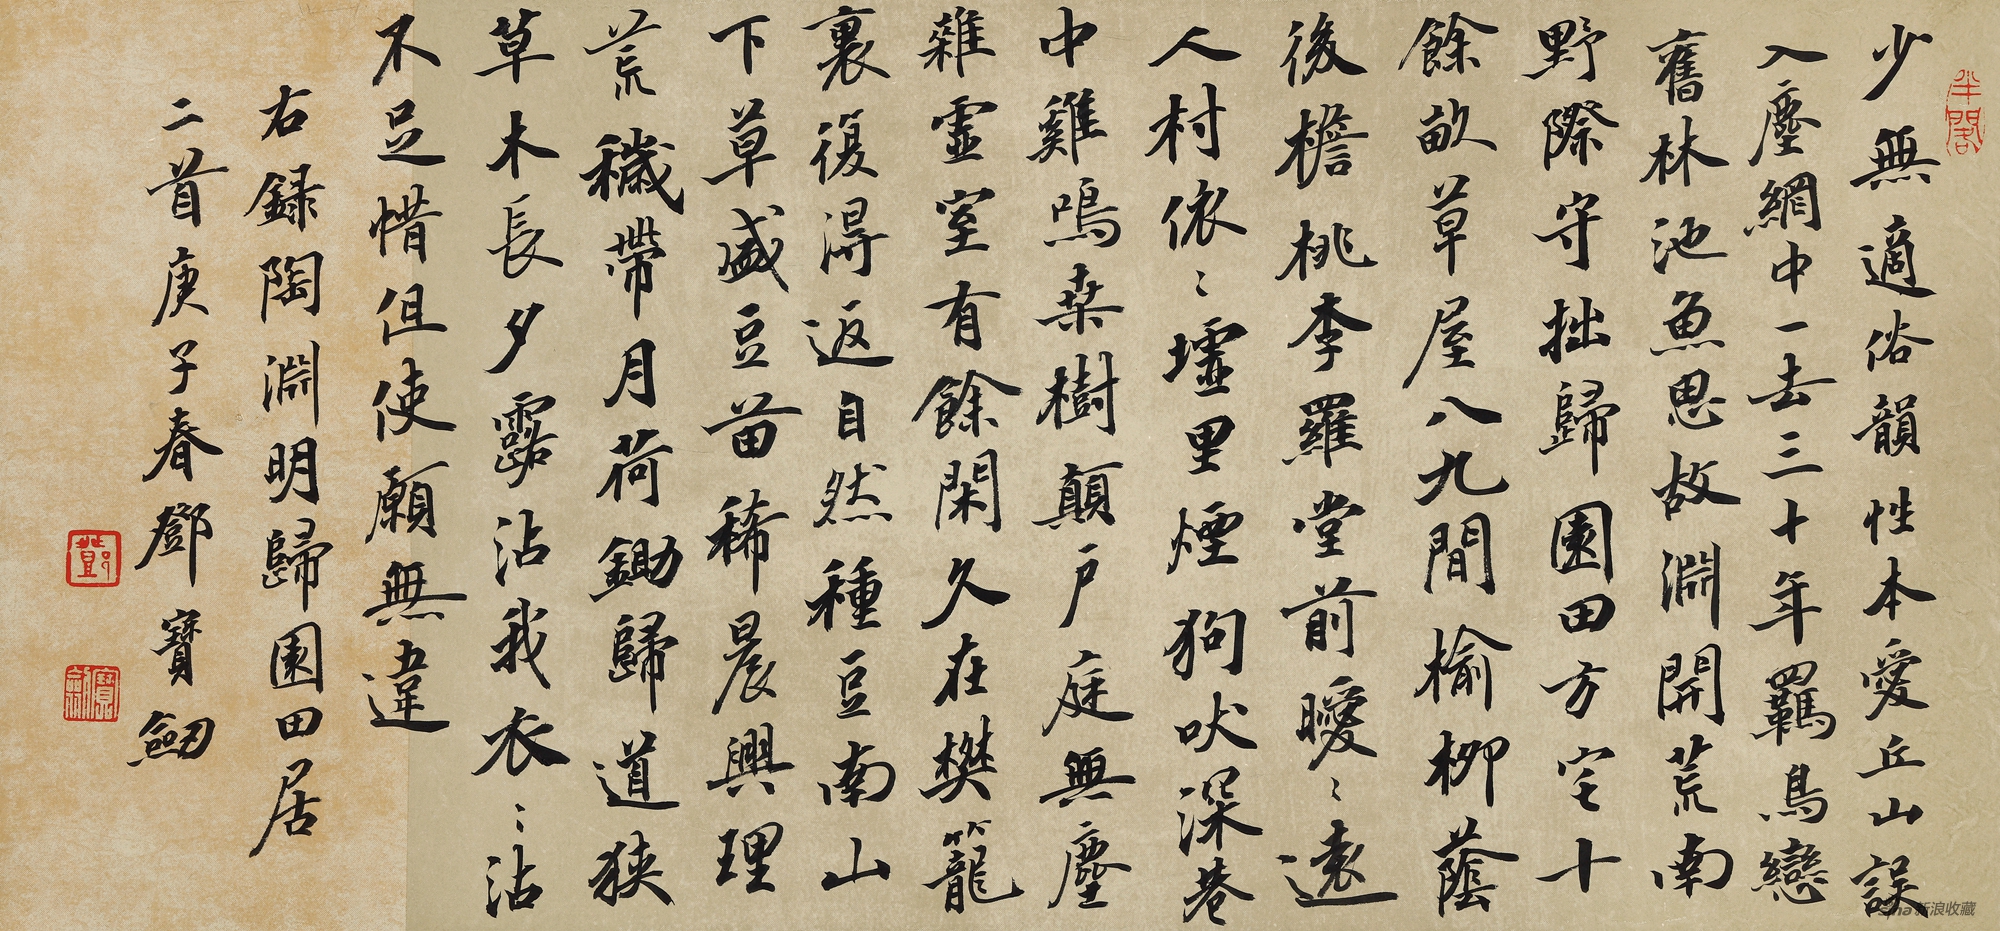 少無適俗韻性本愛丘山誤
入塵網中一去三十年羈鳥戀
舊林池魚思故淵開荒南
野際守拙歸園田方宅十
餘畝草屋八九間榆柳蔭
後檐桃李羅堂前曖〻遠
人村依〻墟里煙狗吠深巷
中雞鳴桑樹顛戶庭無塵
雜虛室有餘閑久在樊籠
裏復得返自然種豆南山
下草盛豆苗稀晨興理
荒穢帶月荷鋤歸道狹
草木長夕露沾我衣〻沾
不足惜但使願無違
右録陶淵明歸園田居
二首庚子春鄧寶劒
鄧
寶劒
sina 新浪收藏